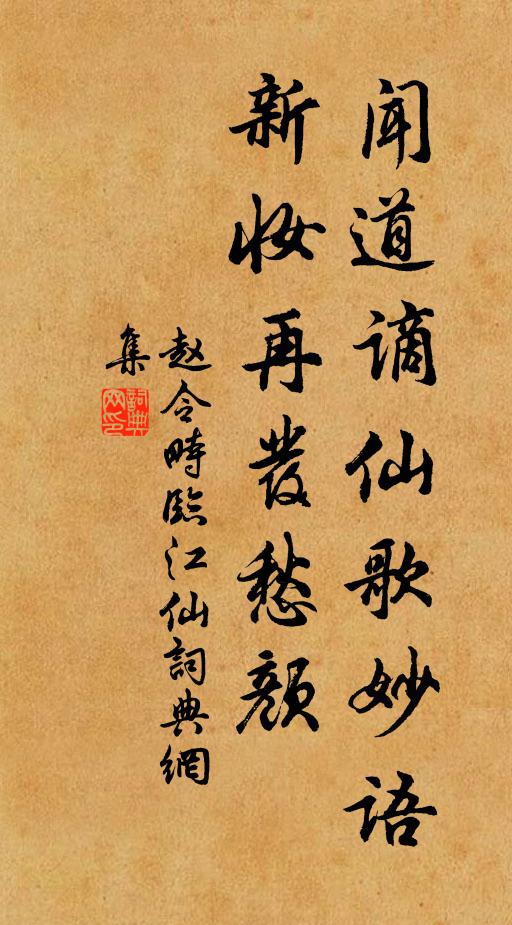 闻道谪仙歌妙语
新妆再发愁颜
赵令畤临江仙詞典網
集
詞典
网印